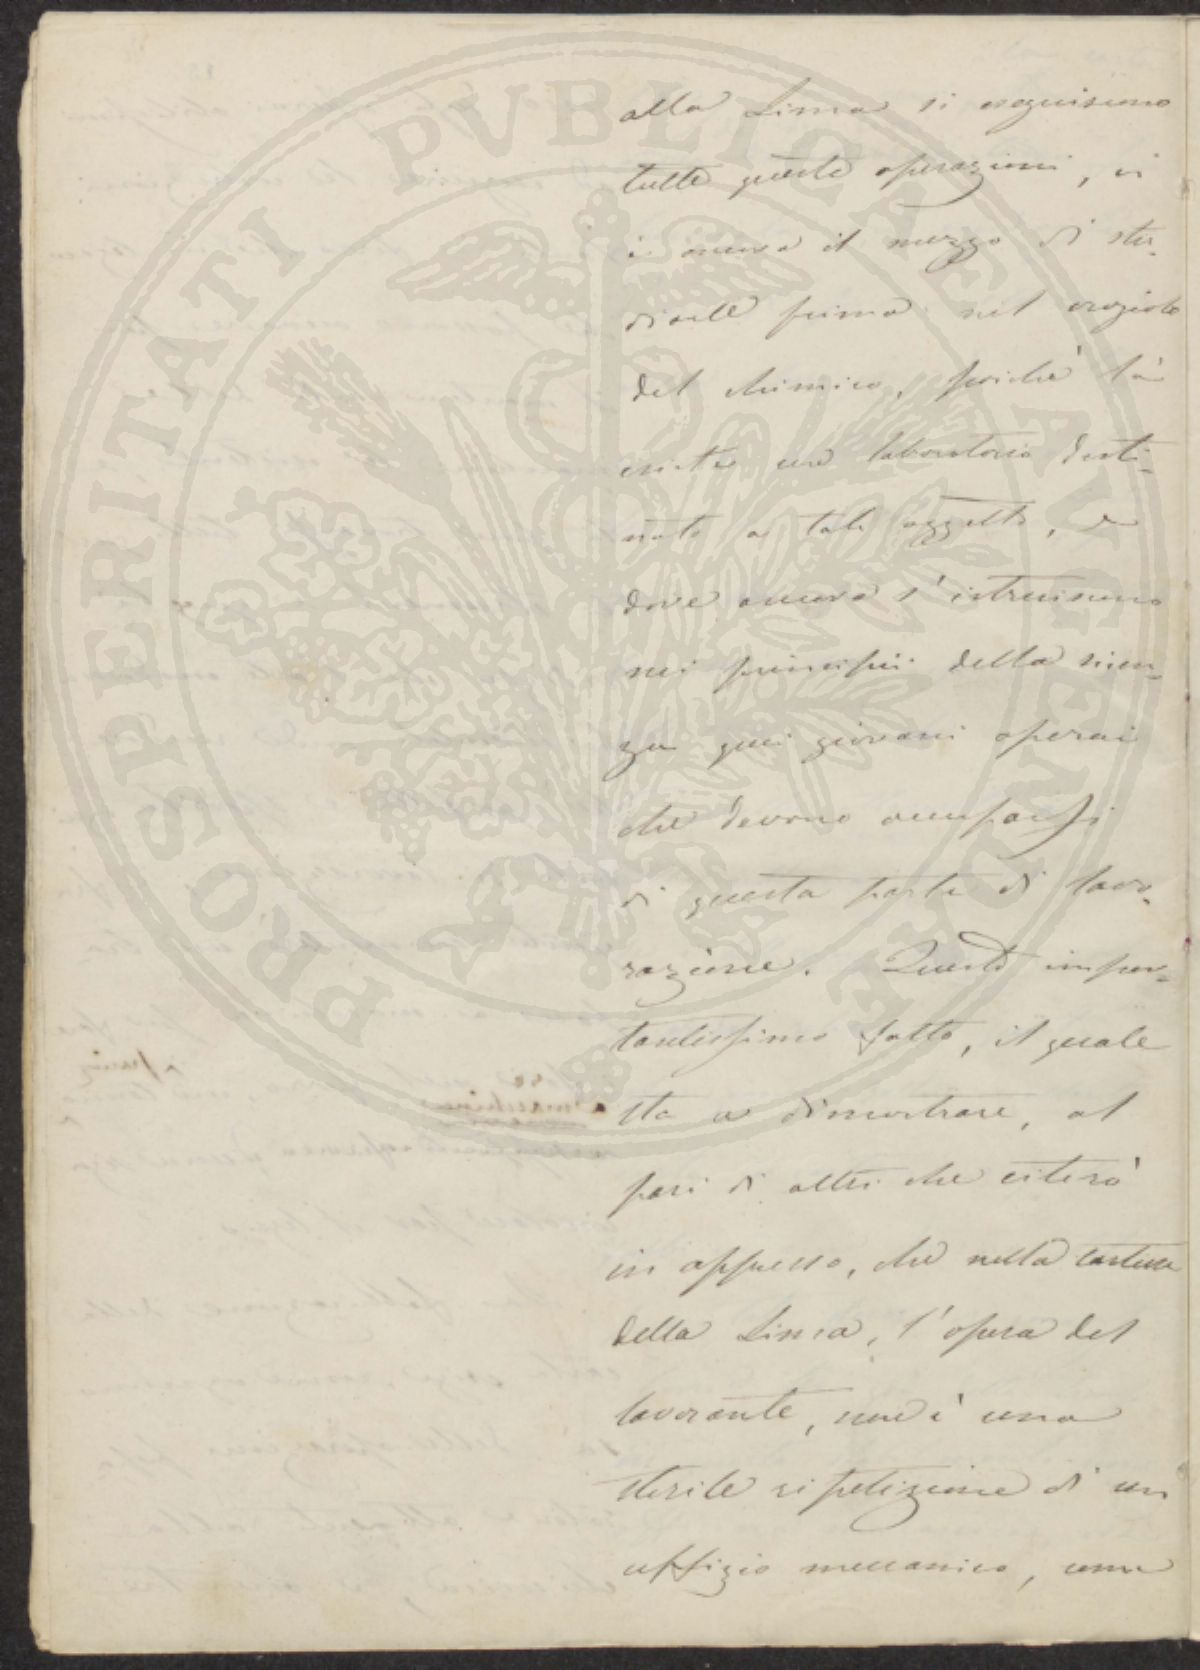 PROSPERITATI PVBLICAE AVGENDAE
alla Lima si eseguiscono
tutte queste operazioni, vi
è ancora il mezzo di stu-
diarle prima nel crogiolo
del chimico, poichè là
esiste un laboratorio desti-
nato a tale oggetto, e
dove ancora s'istruiscono
nei principii della scien-
za quei giovani operai
che devono occuparsi
di questa parte di lavo-
razione. Questo impor-
tantissimo fatto, il quale
sta a dimostrare, al
pari di altri che citerò
in appresso, che nella cartiera
della Lima, l'opera del
lavorante, non è una
sterile ripetizione di un
uffizio meccanico, come